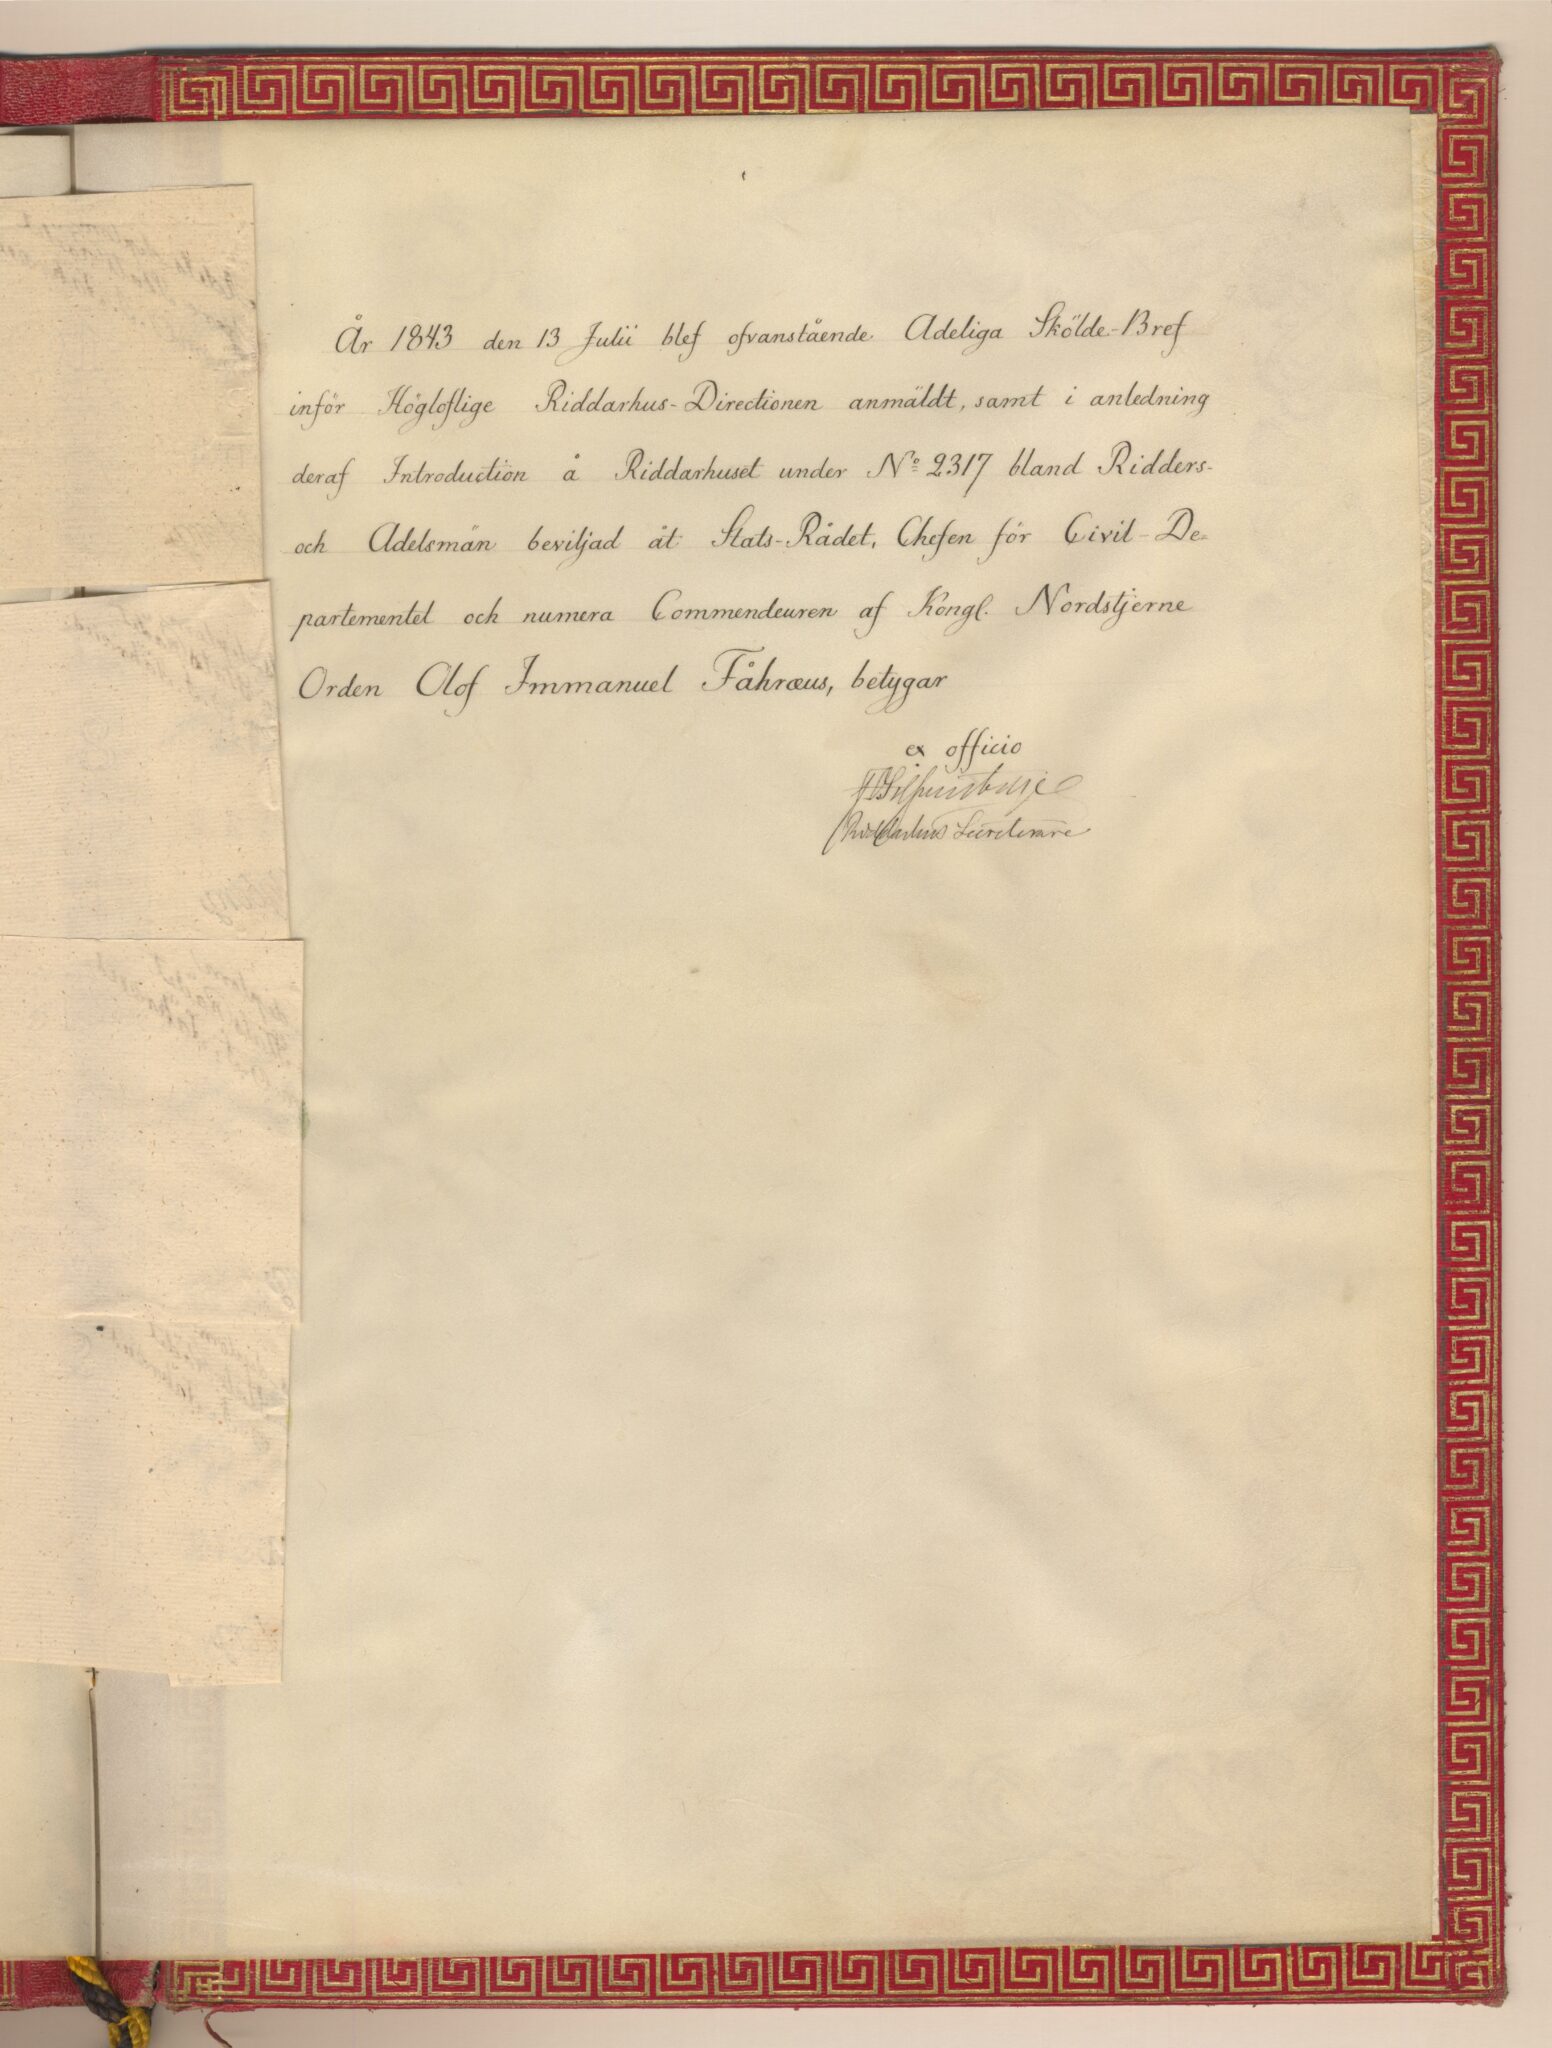 År 1843 den 13 Julii blef ofvanstående Adeliga Skölde-Bref
inför Högloflige Riddarhus-Directionen anmäldt, samt i anledning
deraf Introduction å Riddarhuset under No 2317 bland Ridders-
och Adelsmän beviljad åt Stats-Rådet, Chefen för Civil-De-
partementet och numera Commendeuren af Kongl. Nordstjerne
Orden Olof Immanuel Fåhræus, betygar
ex officio
Riddarhus Secreterare